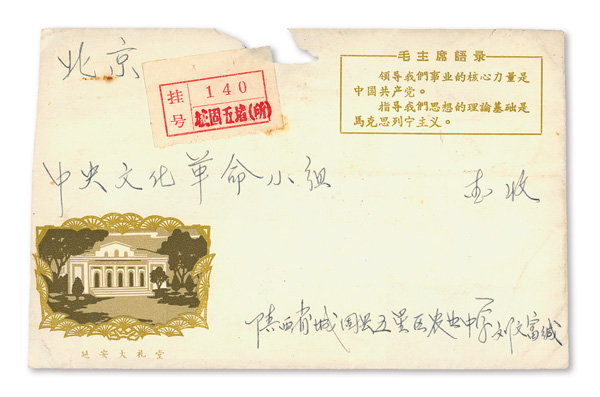 北京
毛主席語录
領导我們事业的核心力量是
中国共产党。
指导我們思想的理論基础是
馬克思列宁主义。
挂号
140
城固五堵(所)
中央文化革命小组 收
陕西省城固县五 区农业中学刘文富缄
延安大礼堂